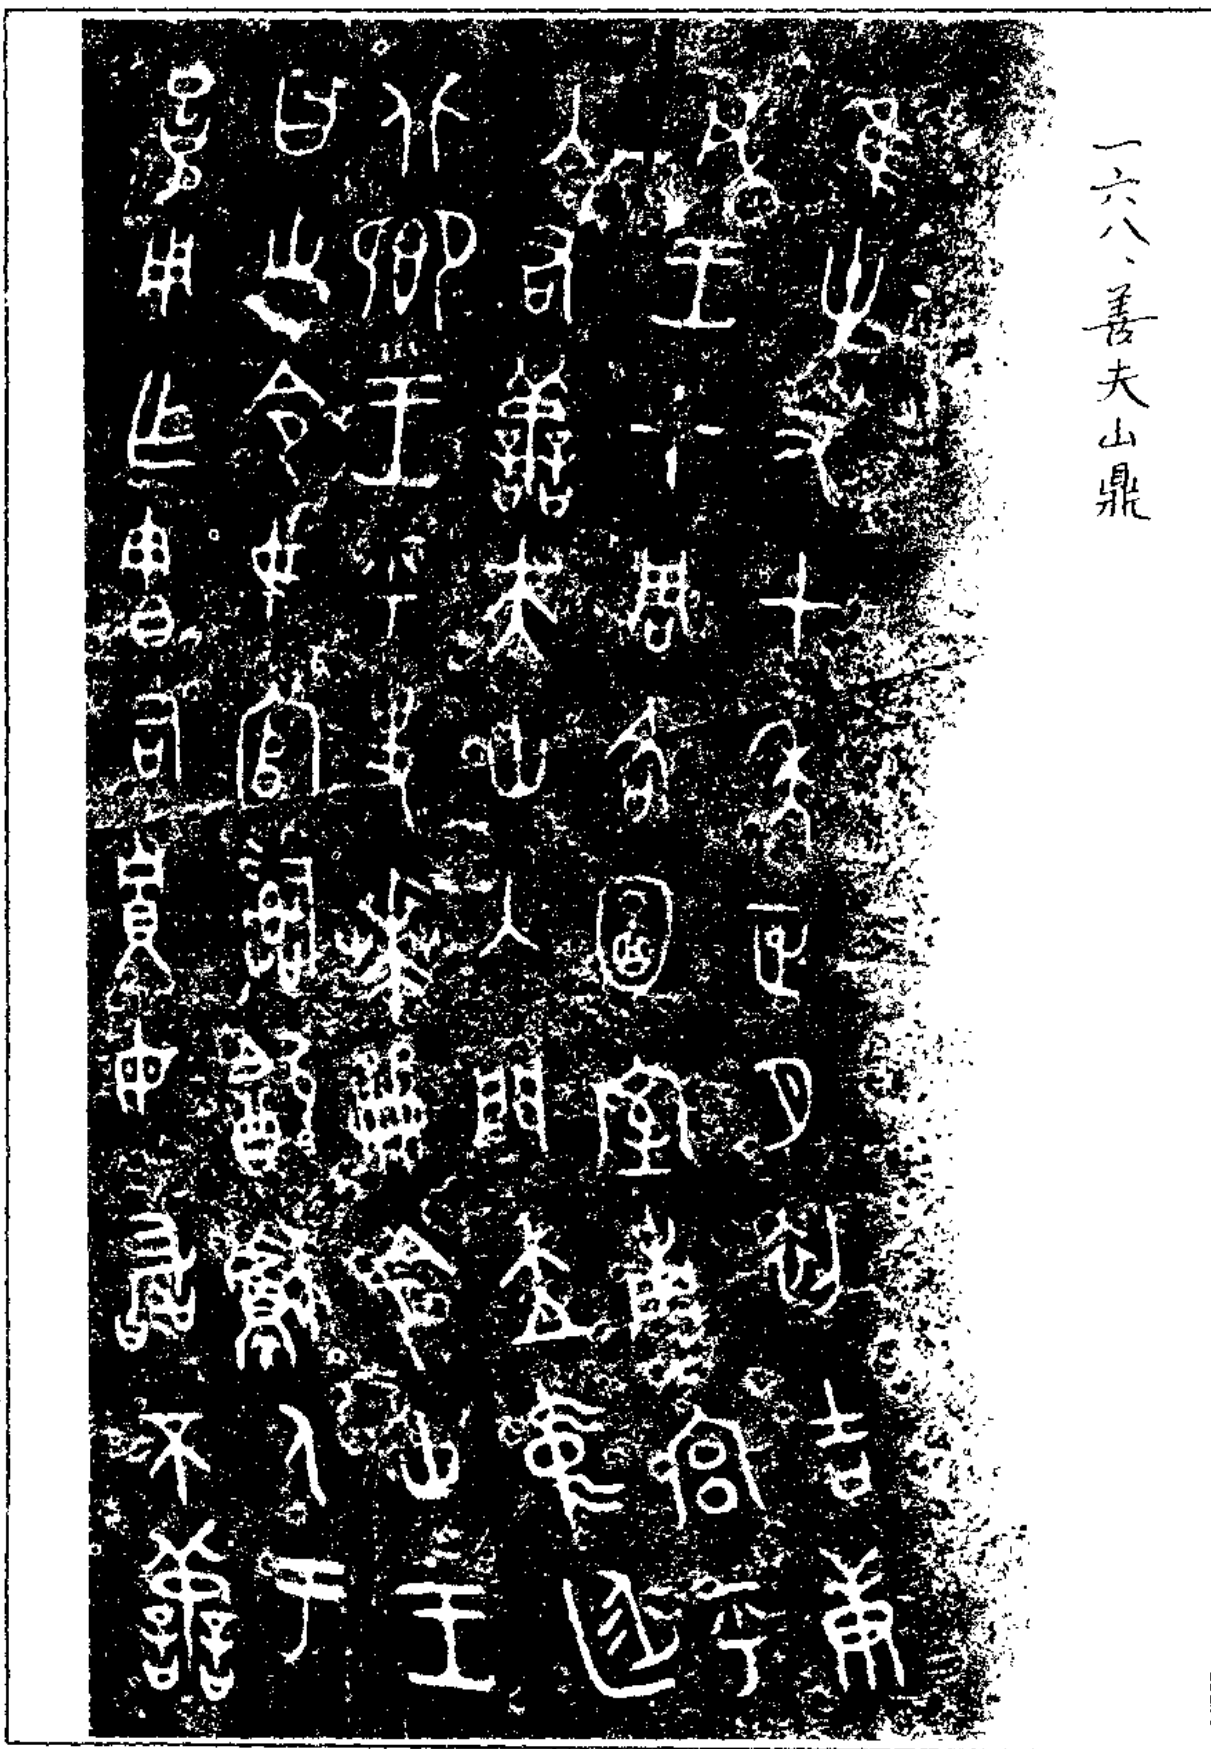 一六八、善夫山鼎
隹卅又七年正月初吉庚
戌王才周各圖室南宮乎
入右善夫山入門立中廷
北鄉王乎史𠦪冊令山王
曰山令女官𤔲㱃獻人于
用乍憲司貯母敢不善